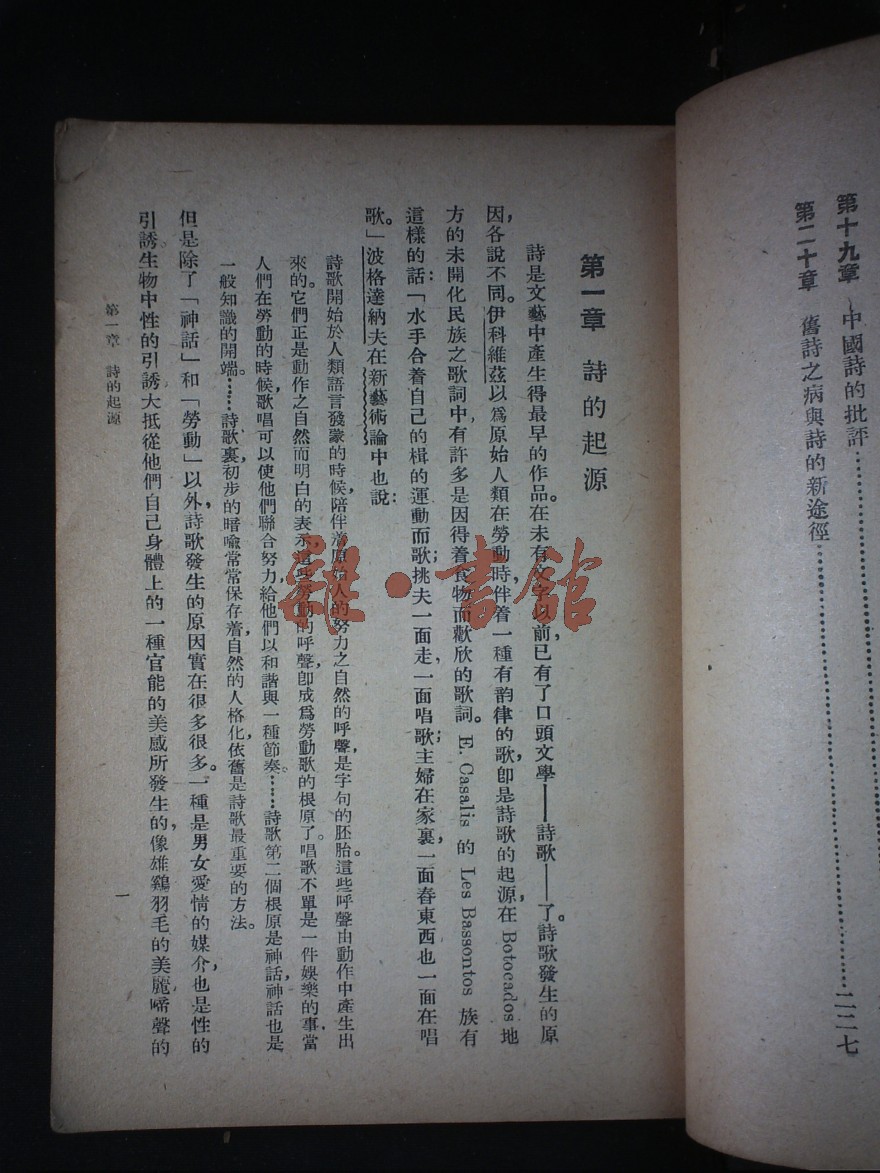 第十九章　中國詩的批評……………………………………
第二十章　舊詩之病與詩的新途徑……………………二二七
第一章　詩的起源
詩是文藝中產生得最早的作品。在未有文字以前，已有了口頭文學——詩歌——了。詩歌發生的原
因，各說不同。伊科維茲以爲原始人類在勞動時伴着一種有韵律的歌，卽是詩歌的起源，在 Botocados 地
方的未開化民族之歌詞中，有許多是因得着食物而歡欣的歌詞。E. Casalis 的 Les Bassontos 族有
這樣的話：「水手合着自己的楫的運動而歌；挑夫一面走，一面唱歌；主婦在家裏，一面舂東西，也一面在唱
歌。」波格達納夫在新藝術論中也說：
詩歌開始於人類語言發蒙的時候，陪伴着原始人的努力之自然的呼聲，是字句的胚胎。這些呼聲由動作中產生出
來的。它們正是動作之自然而明白的表示，這些勞動的呼聲卽成爲勞動歌的根原了。唱歌不單是一件娛樂的事，當
人們在勞動的時候，歌唱可以使他們聯合努力，給他們以和諧與一種節奏。……詩歌第二個根原是神話，神話也是
一般知識的開端。……詩歌裏初步的暗喩常常保存着自然的人格化，依舊是詩歌最重要的方法。
但是除了「神話」和「勞動」以外，詩歌發生的原因實在很多很多。一種是男女愛情的媒介，也是性的
引誘。生物中性的引誘大抵從他們自己身體上的一種官能的美感所發生的，像雄鷄羽毛的美麗，啼聲的
第一章　詩的起源
一
雜·書館